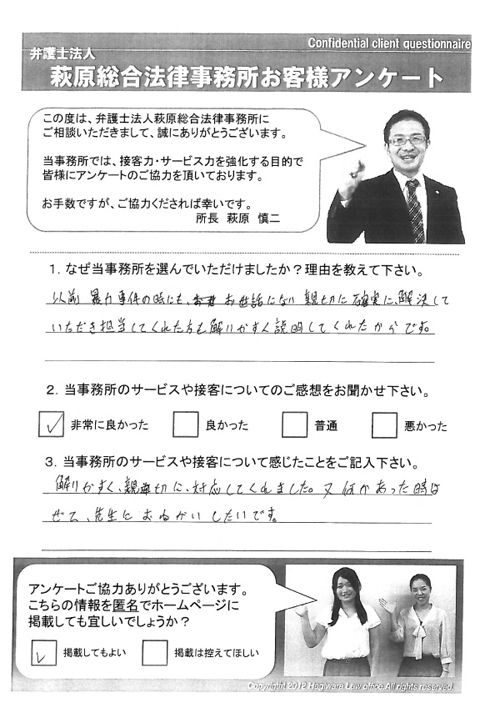 Confidential client questionnaire
弁護士法人
萩原総合法律事務所お客様アンケート
この度は、弁護士法人萩原総合法律事務所に
ご相談いただきまして、誠にありがとうございます。
当事務所では、接客力・サービス力を強化する目的で
皆様にアンケートのご協力を頂いております。
お手数ですが、ご協力くだされば幸いです。
所長 萩原 慎二
1. なぜ当事務所を選んでいただけましたか？理由を教えて下さい。
以前 暴力事件の時にも、お世話になり 親切に確実に、解決して
いただき担当してくれた方も解りやすく説明してくれたからです。
2. 当事務所のサービスや接客についてのご感想をお聞かせ下さい。
✓ 非常に良かった 良かった 普通 悪かった
3. 当事務所のサービスや接客について感じたことをご記入下さい。
解りやすく、親切に、対応してくれました。又何かあった時は
ぜひ、先生に おねがいしたいです。
アンケートご協力ありがとうございます。
こちらの情報を匿名でホームページに
掲載しても宜しいでしょうか？
✓ 掲載してもよい 掲載は控えてほしい
Copyright 2012 Hagiwara Law office All rights reserved.